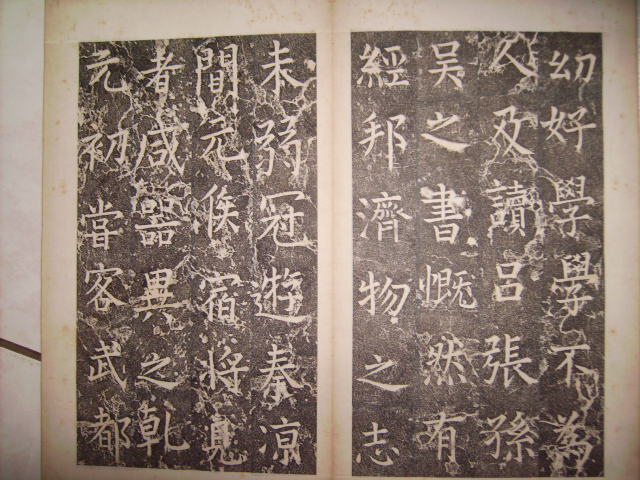 幼好學學不為
人及讀呂張孫
吴之書慨然有
經邦濟物之志
未弱冠遊秦凉
間元侯宿將見
者咸器異之乾
元初嘗客武都